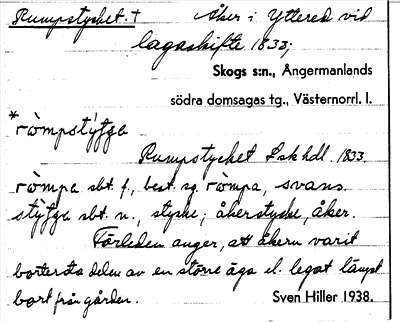 Rumpstycket. † Åker i Yttered vid
lagaskifte 1833;
Skogs s:n., Ångermanlands
södra domsagas tg., Västernorrl. l.
*ròmpstýʃʃa
Rumpstycket Lskhdl. 1833.
ròmpa sbt. f., best. sg. ròmpa, svans.
stýʃʃa sbt. n., stycke; åkerstycke, åker.
Förleden anger, att åkern varit
bortersta delen av en större äga el. legat längst
bort från gården. Sven Hiller 1938.